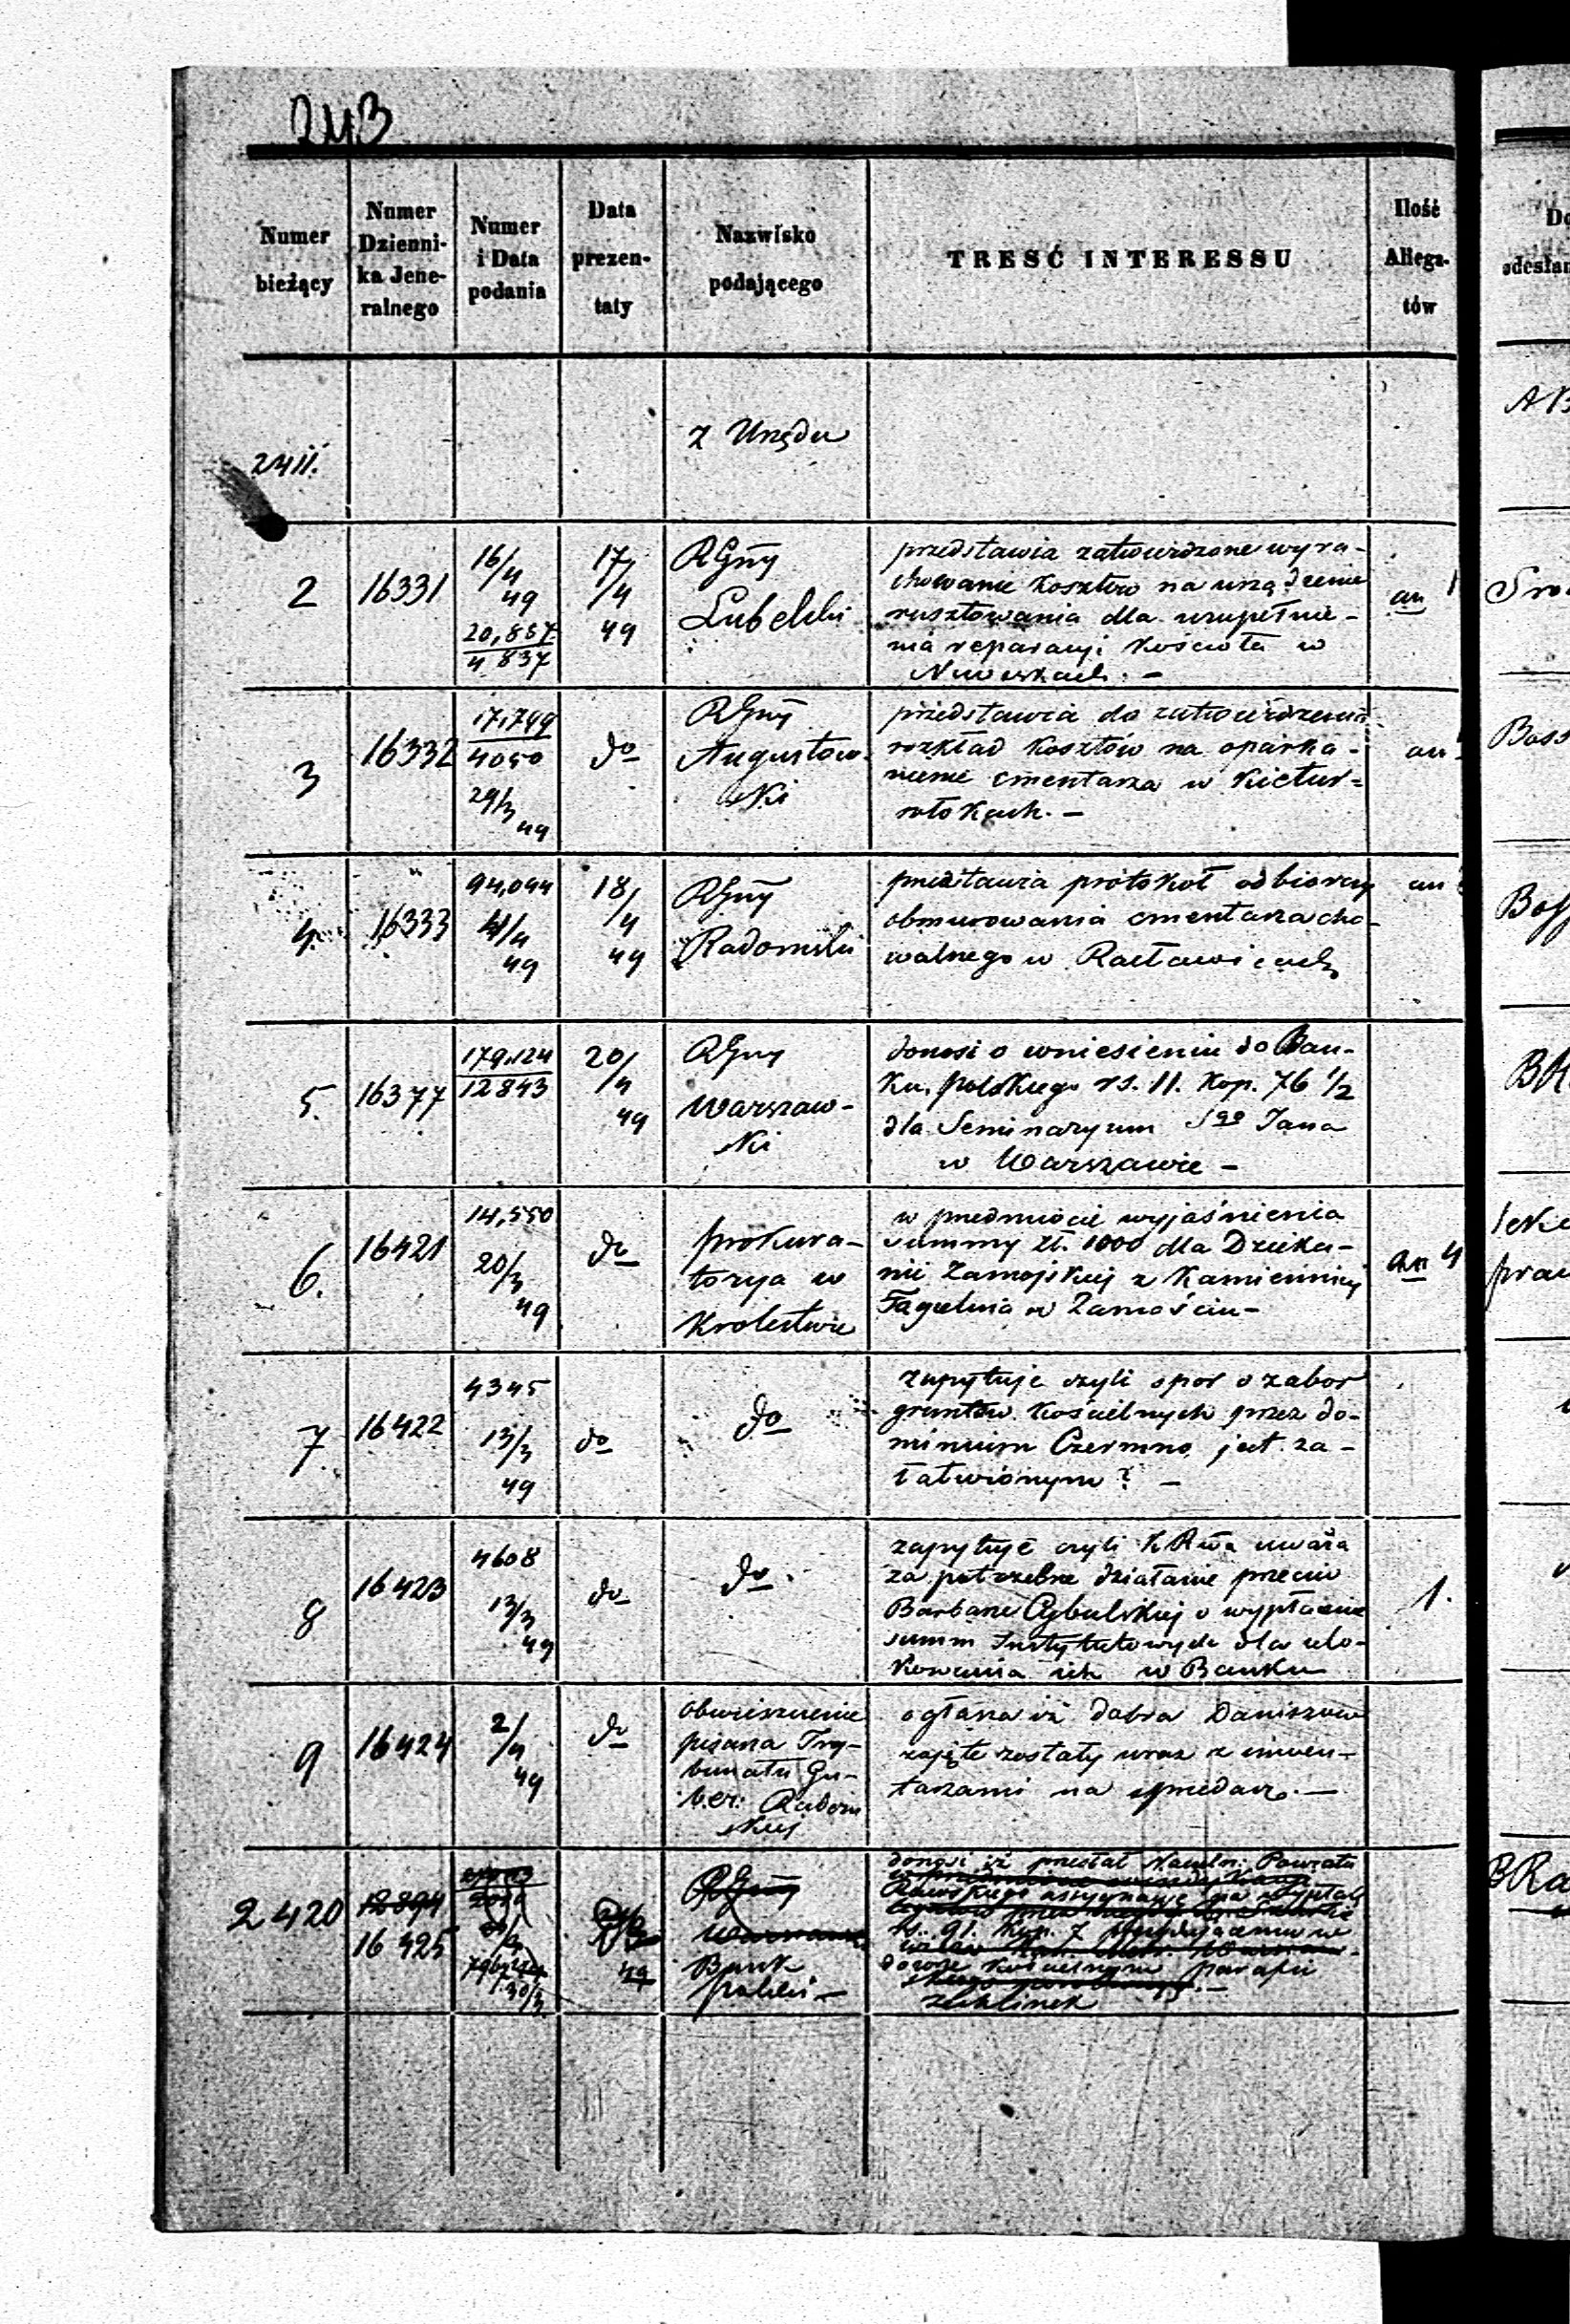 243
Numer bieżący
Numer Dzienni-ka Jene-ralnego
Numer i Data podania
Data prezen-taty
Nazwisko podającego
TRESĆ INTERESSU
Ilość Allega-tów
2411.
z Urzędu
2
16331
16/4 49
20,857
4837
17/4 49
RGny
Lubelski
przedstawia zatwierdzone wyra-
chowanie kosztów na urządzenie
rusztowania dla uzupełnie-
nia reparacyi Kościoła w
an 1
3
16332
17,749
4050
29/3 49
do
RGny
Augustow-
ski
przedstawia do zatwierdzenia
rozkład kosztów na oparka-
nienie cmentarza w Kietur-
włokach. —
an
4
16333
94,044
4/4 49
18/4 49
RGny
Radomski
przedstawia protokół odbiorczy
obmurowania cmentarza cho-
walnego w Racławicach
an
5.
16377
179.124
12843
20/4 49
RGny
Warszaw-
ski
donosi o wniesieniu do Ban-
ku polskiego rs. 11. kop. 76 1/2
dla Seminaryum Sgo Jana
w Warszawie —
6.
16421
14,550
20/3 49
do
prokura-
torya w
Krolestwie
w przedmiocie wyjaśnienia
summy zł. 1000 dla Dzieka-
nii Zamojskiej z Kamienicy
w Zamościu —
an 4
7
16422
4345
13/3 49
do
do
zapytuje czyli spor o zabor
gruntów kościelnych przez do-
minium Czermno jest za-
łatwionym? —
8
16423
4608
13/3 49
do
do.
zapytuje czyli KRwa uważa
za potrzebne działanie przeciw
Barbarze Cybulskiej o wypłacenie
summ Instytutowych dla ulo-
kowania ich w Banku
1.
9
16424
2/4 49
do
obwieszczenie
pisarza Try-
bunału Gu-
ber: Radom
skiej
ogłasza iż dobra Daniszów
zajęte zostały wraz z inwen-
tarzami na sprzedaż. —
2420
12894
16425
30/3
49
RGny
Warszawski
Bank
polski —
donosi iż przesłał Naczeln: Powiatu
Rawskiego assygnacyę na wypłatę
rs. 91. kop. 7
dozorowi kościelnemu parafii